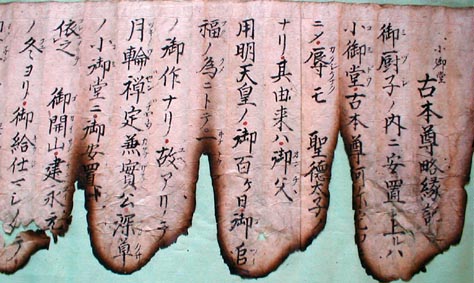 小御堂
古本尊略縁記
御厨子ノ内ニ安置上ルハ
小御堂古本尊阿弥
辱モ 聖徳太子
ナリ其由来ハ御父
用明天皇ノ御百ケ日御追
福ノ為ニトテ
ノ御作ナリ故アリテ
月輪禅定兼實公深草
ノ小御堂ニ御安置
依之 御開山建永元
ノ冬ヨリ御給仕マシ〳〵テ